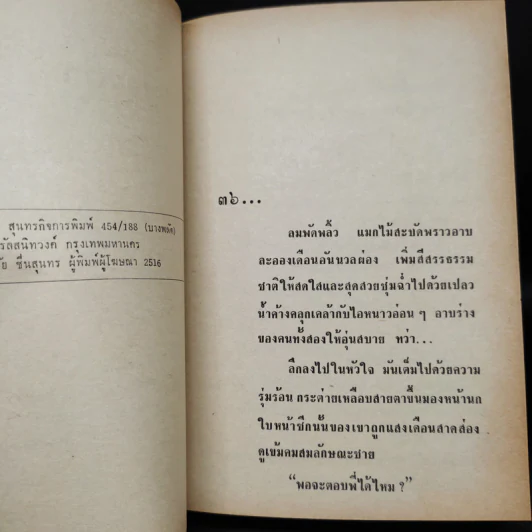 สุนทรกิจการพิมพ์ 454/188 (บางพลัด)
รัลสนิทวงศ์ กรุงเทพมหานคร
ชื่นสุนทร ผู้พิมพ์ผู้โฆษณา 2516
๓๖...
ลมพัดพลิ้ว แมกไม้สะบัดพราวอาบ
ละอองเดือนอันนวลผ่อง เพิ่มสีสรรธรรม
ชาติให้สดใสและสุดสวยชุ่มฉ่ำไปด้วยเปลว
น้ำค้างคลุกเคล้ากับไอหนาวอ่อน ๆ อาบร่าง
ของคนทั้งสองให้อุ่นสบาย ทว่า...
ลึกลงไปในหัวใจ มันเต็มไปด้วยความ
รุ่มร้อน กระต่ายเหลือบสายตาขึ้นมองหน้านก
ใบหน้าซีกนั้นของเขาถูกแสงเดือนสาดส่อง
ดูเข้มคมสมลักษณะชาย
“พอจะตอบพี่ได้ไหม ?”